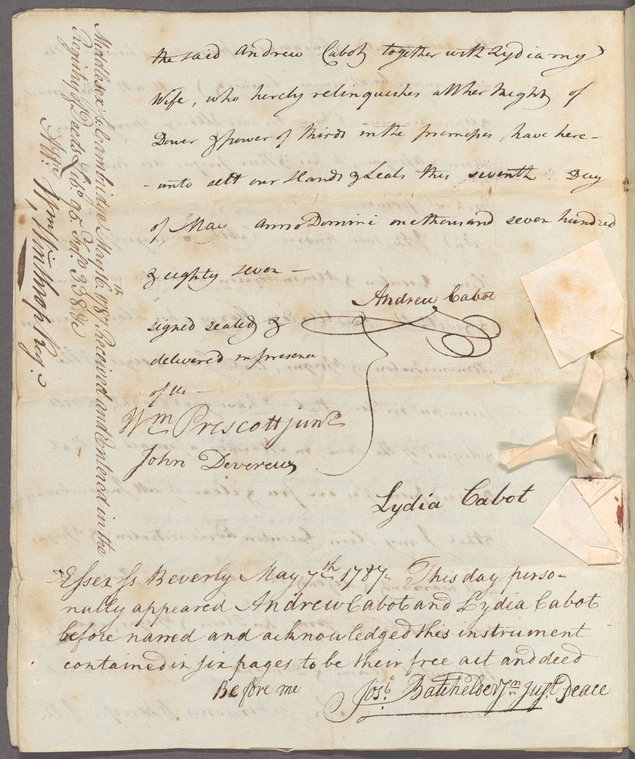 the said Andrew Cabot together with Lydia my
Wife, who hereby relinquishes all her Right of
Dower & power of thirds in the premises, have here-
-unto sett our Hands & Seals this seventh Day
of May anno Domini one thousand seven hundred
& eighty seven —
Andrew Cabot
signed sealed &
delivered in presence
of us -
Wm Prescott junr
John Devereux
Lydia Cabot
Essex Ss Beverly May 7th 1787. This day perso-
nally appeared Andrew Cabot and Lydia Cabot
before named and acknowledged this instrument
contained in six pages to be their free act and deed
Before me
Josh Batchelder Jun Just Peace
Middlesex Ss Cambridge May 16th 1787. Received and Entered in the
Registry of Deeds Libo 95 Folo 338 &c
Wm Winthrop Reg.